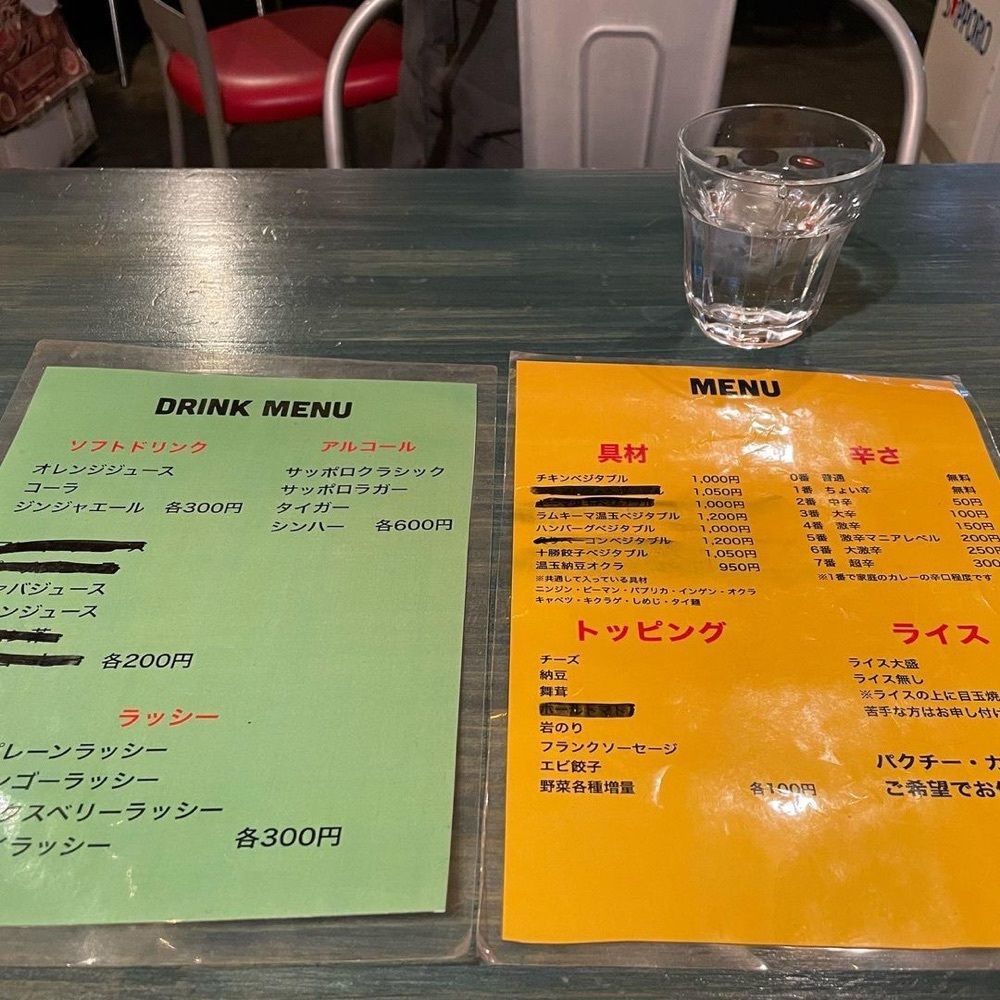 SAPPORO
DRINK MENU
ソフトドリンク
オレンジジュース
コーラ
ジンジャエール 各300円
アルコール
サッポロクラシック
サッポロラガー
タイガー
シンハー 各600円
バジュース
ンジュース
各200円
ラッシー
プレーンラッシー
ンゴーラッシー
クスベリーラッシー
ラッシー
各300円
MENU
具材
チキンベジタブル 1,000円
1,050円
1,000円
ラムキーマ温玉ベジタブル 1,200円
ハンバーグベジタブル 1,000円
コンベジタブル 1,200円
十勝餃子ベジタブル 1,050円
温玉納豆オクラ 950円
※共通して入っている具材
ニンジン・ピーマン・パプリカ・インゲン・オクラ
キャベツ・キクラゲ・しめじ・タイ麺
辛さ
0番 普通 無料
1番 ちょい辛 無料
2番 中辛 50円
3番 大辛 100円
4番 激辛 150円
5番 激辛マニアレベル 200円
6番 大激辛 250円
7番 超辛 300
※1番で家庭のカレーの辛口程度です
トッピング
チーズ
納豆
舞茸
ホールトマト
岩のり
フランクソーセージ
エビ餃子
野菜各種増量 各100円
ライス
ライス大盛
ライス無し
※ライスの上に目玉焼
苦手な方はお申し付け
パクチー・カ
ご希望でお